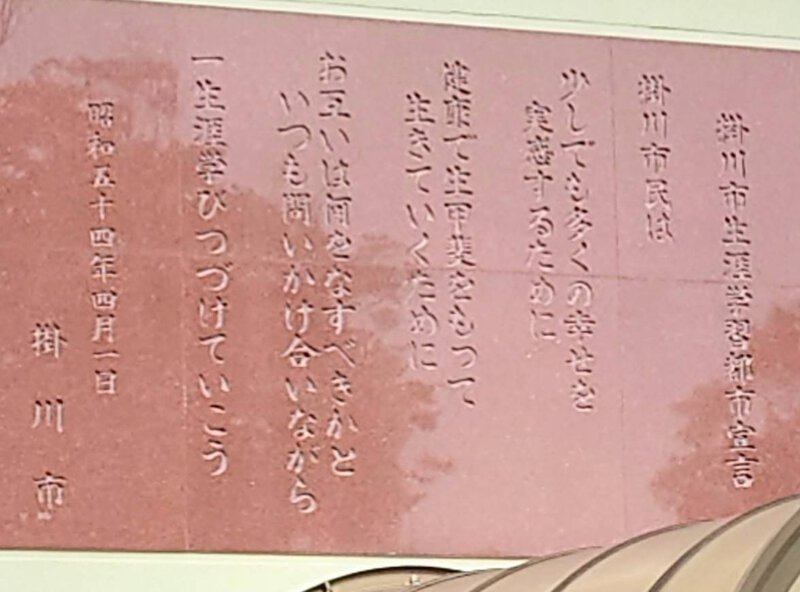 掛川市生涯学習都市宣言
掛川市民は
少しでも多くの幸せを
実感するために
健康で生甲斐をもって
生きていくために
お互いは何をなすべきかと
いつも問いかけ合いながら
一生涯学びつづけていこう
昭和五十四年四月一日
掛川市